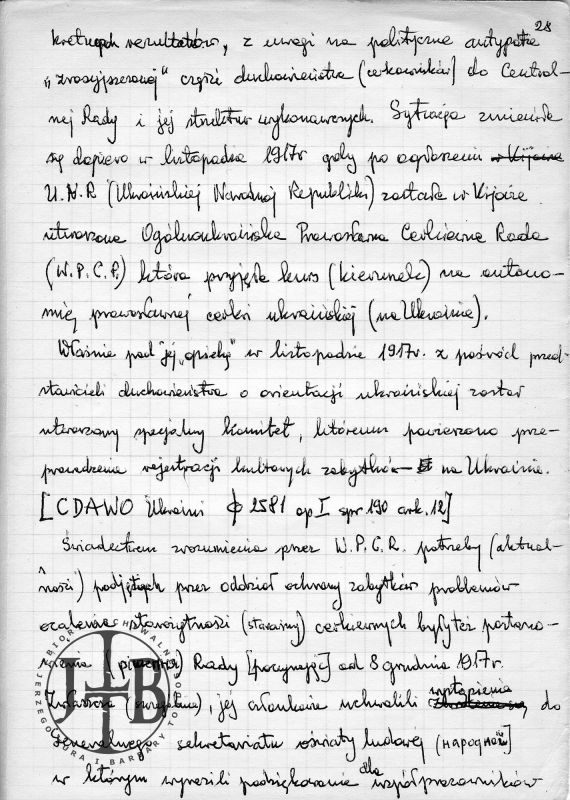 28
kretnych rezultatów, z uwagi na polityczne antypatie
„zrosyjszczonej" części duchowieństwa (cerkowników) do Central-
nej Rady i jej struktur wykonawczych. Sytuacja zmieniła
się dopiero w listopadzie 1917r gdy po ogłoszeniu w Kijowie
U.N.R (Ukraińskiej Narodnej Republiki) została w Kijowie
utworzona Ogólnoukraińska Prawosławna Cerkiewna Rada
(W.P.C.R.) która przyjęła kurs (kierunek) na autono-
mię prawosławnej cerkwi ukraińskiej (na Ukrainie).
Właśnie pod "jej „opieką" w listopadzie 1917r. z pośród przed-
stawicieli duchowieństwa o orientacji ukraińskiej został
utworzony specjalny komitet, któremu powierzono prze-
prowadzenie rejestracji kultowych zabytków na Ukrainie.
[CDAWO Ukraini ф 2581 op I spr 190 ark. 12]
Świadectwem zrozumienia przez W.P.C.R. potrzeby (aktual-
ności) podjętych przez oddział ochrony zabytków problemów
ocalenia starożytności (staražyn) cerkiewnych były też postano-
wienia Rady [poczynając] od 8 grudnia 1917r.
Zwłaszcza, jej członkowie uchwalili wystąpienie do
Generalnego sekretariatu oświaty ludowej (народной)
w którym wyrazili podziękowanie dla współpracowników
JERZEGO JURA I BARBARY
J†B